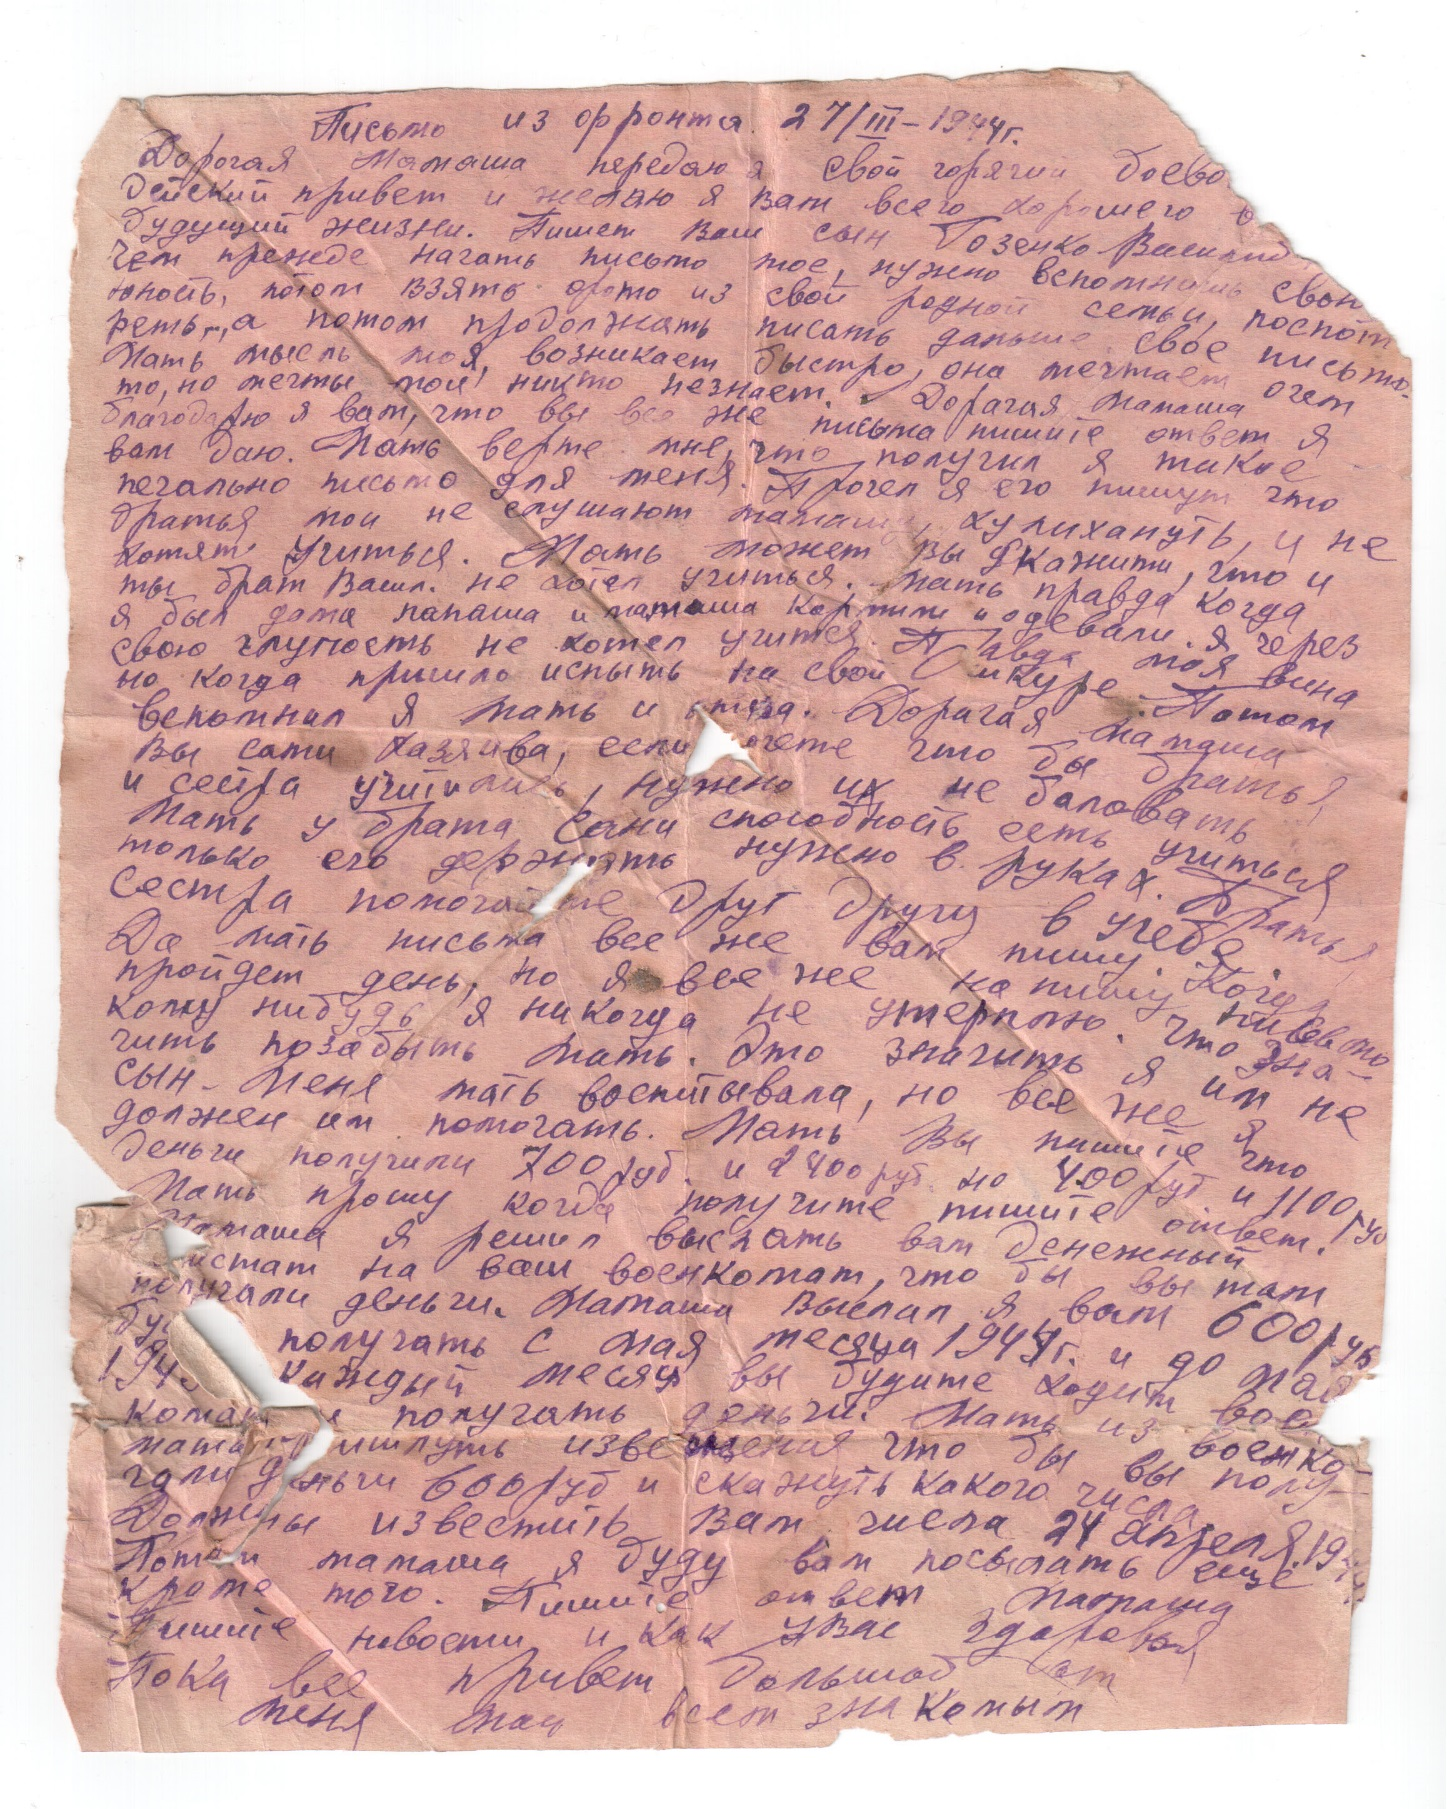 Письмо из фронта 27/III-1944г.
Дорогая Мамаша передаю я свой горячий боево
дейский привет и желаю я Вам всего хорошего в
будущий жизни. Пишет Ваш сын Бозенко Василий
Чем прежде начать письмо мое, нужно вспомнишь свою
юность, потом взять фото из свой родной семьи, поспот
реть, а потом продолжать писать дальше свое письмо.
Мать мысль моя, возникает быстро, она мечтает очем
то, но мечты мои никто незнает. Дорагая Мамаша
благодарю я вам, что вы все же письма пишите ответ я
вам даю. Мать верте мне, что получил я такое
печально письмо для меня. Прочел я его пишут что
братья мои не слушают мамашу, хулихануть, и не
хотят учиться. Мать может вы скажити, что и
ты брат Васил. не хотел учиться. Мать правда когда
я был дома папаша и мамаша кормили и одевали. я через
свою глупость не хотел учится. Правда моя вина
но когда пришло испыть на свой шкуре. Потом
вспомнил я мать и отца. Дорагая мамаша
Вы сами хазяива, если хочете что бы братья
и сестра училились, нужно их не баловать
Мать у брата Сани способность есть учиться
только его держать нужно в руках. Братья
Сестра помогайте друг другу в учебе
Да мать письма все же вам пишу
пройдет день, но я все же напишу Когда нибудь
кому нибудь я никогда не утерплю. что зна-
чить позабыть мать. Это значить я им не
сын. Меня мать воспитывала, но все же я
должен им помогать. Мать Вы пишите что
деньги получили 700 руб. и 2400 руб. но 400 руб и 1100 руб
Мать прошу когда получите пишите ответ.
Мамаша я решил выслать вам денежный
истат на ваш военкомат, что бы вы там
получали деньги. Мамаша выслал я вам 600 руб
получать с мая месяца 1944г. и до мая
194 каждый месяц вы будите ходит вое
комат получать деньги. Мать из военко-
мата пришлуть извещения что бы вы полу-
чали деньги 600 руб и скажуть какого числа
Должны известить Вам числа 24 апреля 19
Потом мамаша я буду вам посылать еще
кроме того. Пишите ответ Мамаша
Пишите новости и как у Вас здоровья
Пока все привет большой от
меня мац всем знакомым